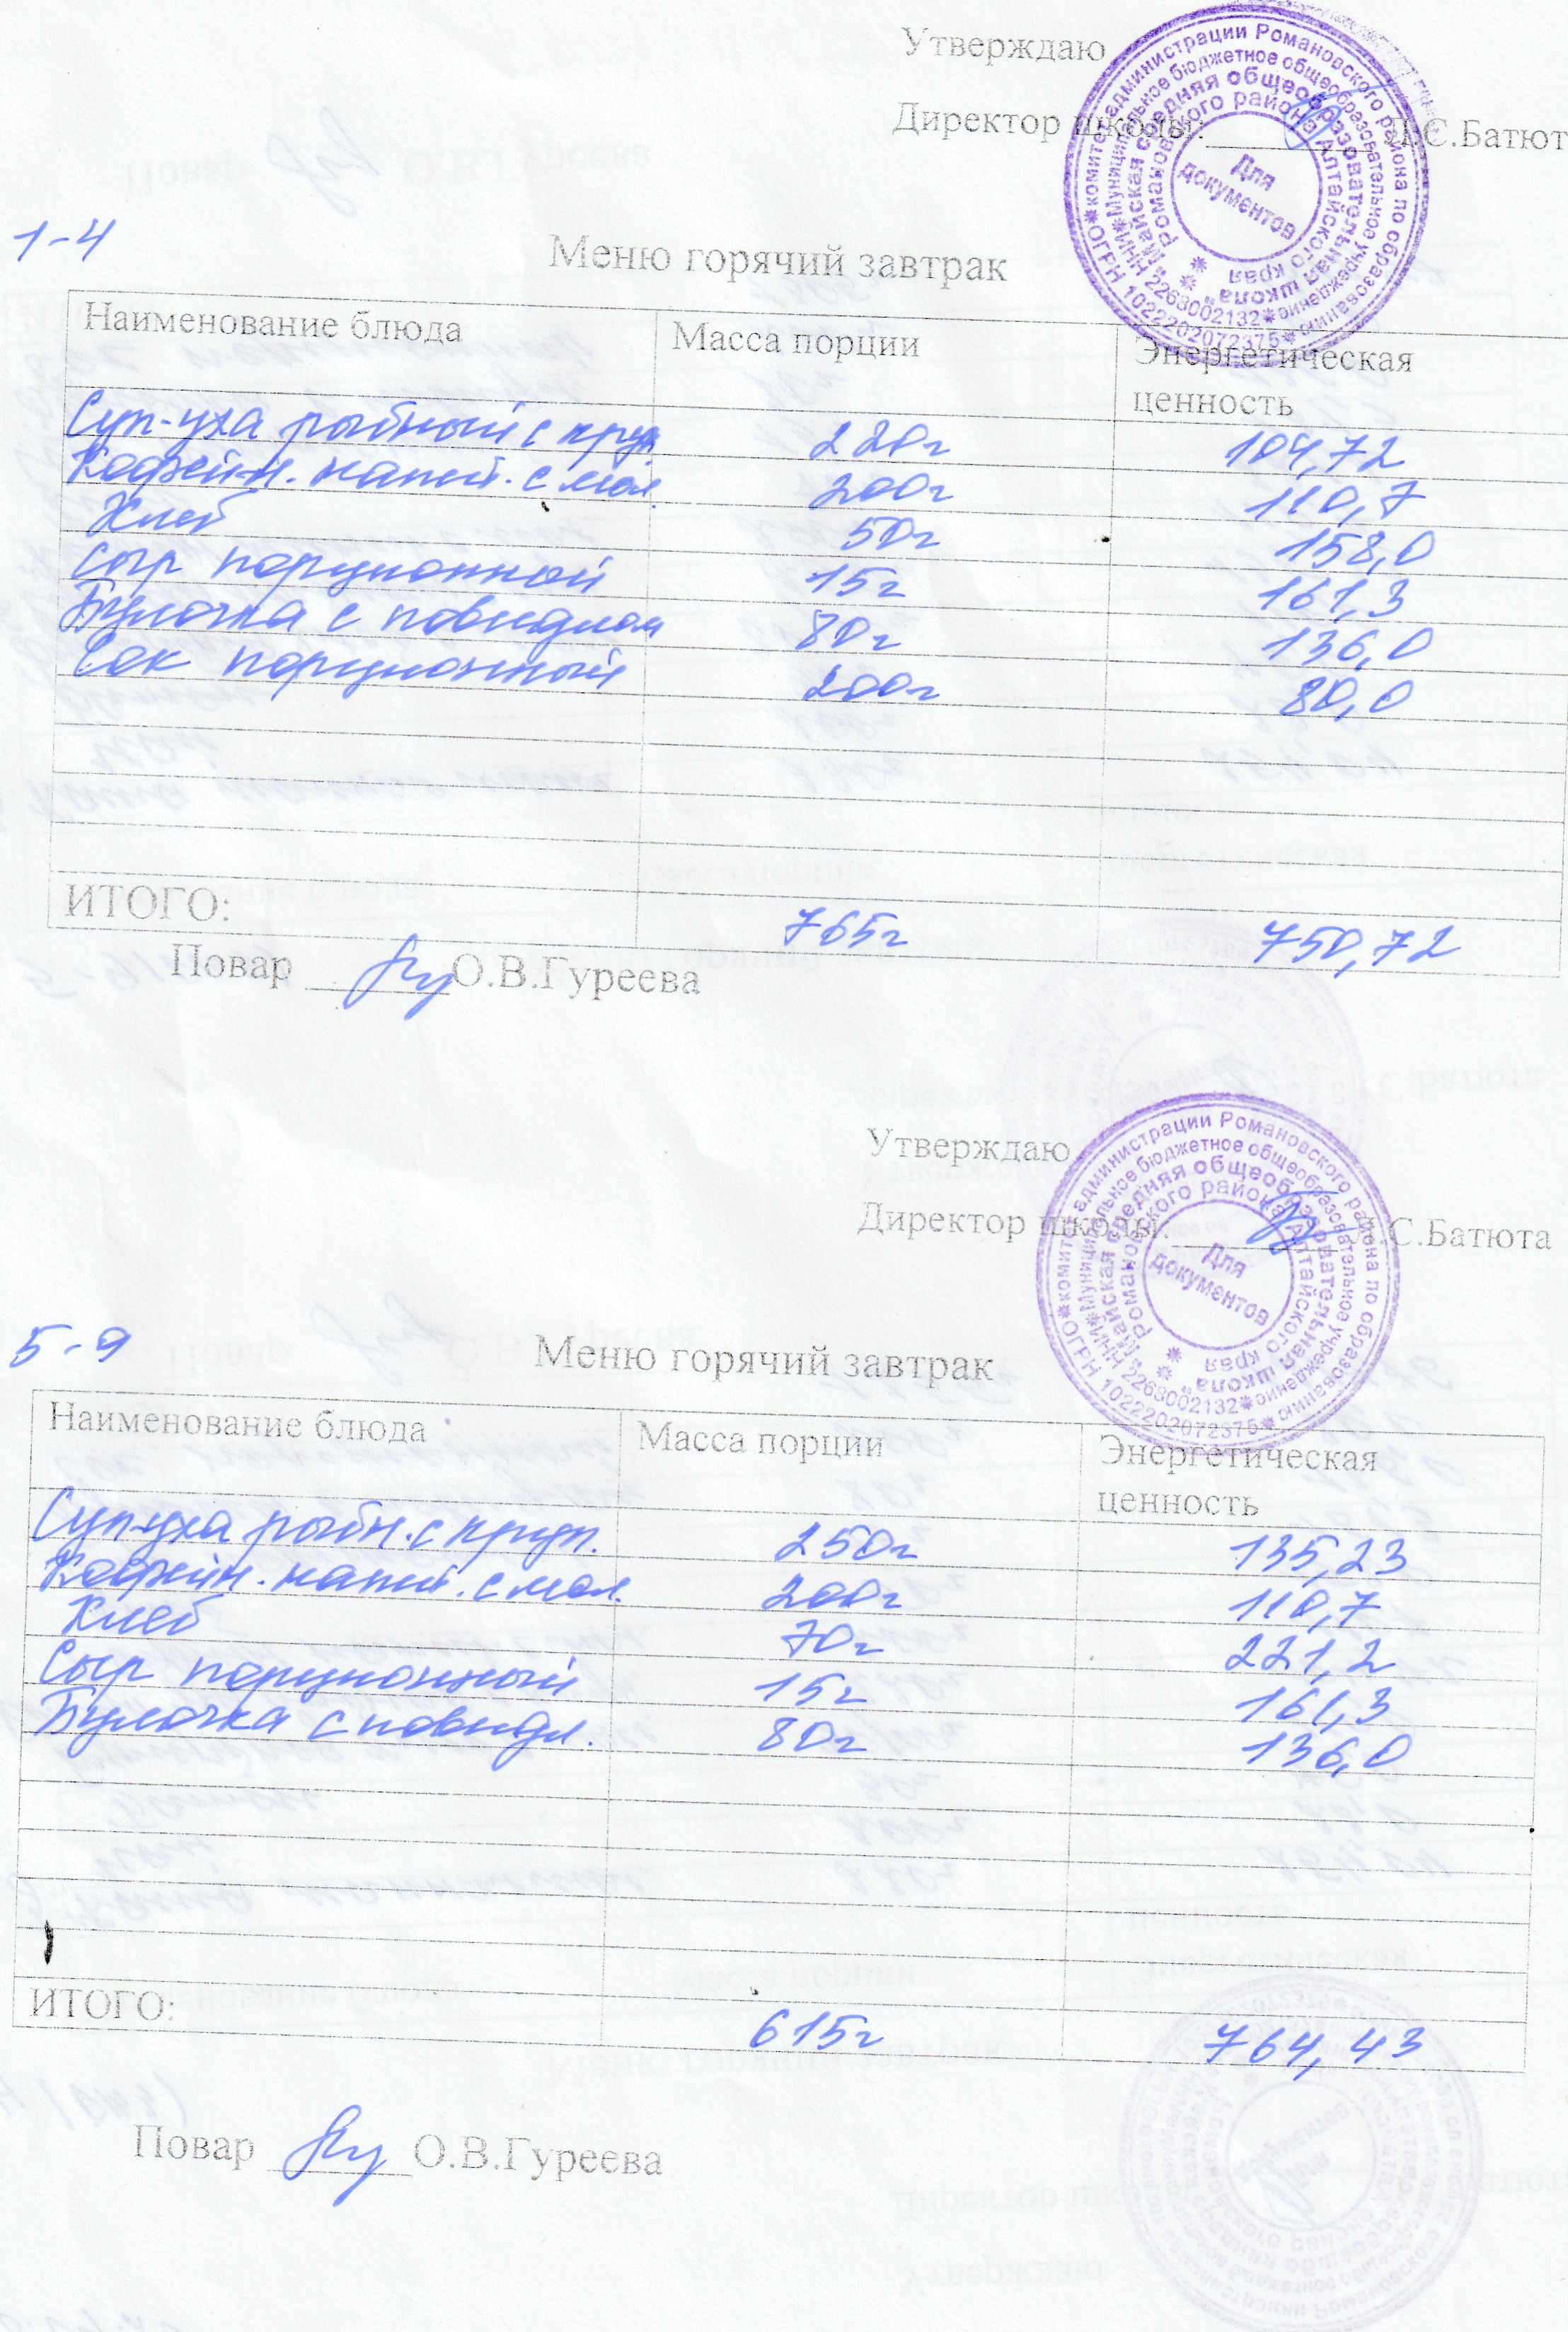 Утверждаю
Директор школы: Л.С.Батют
комитет администрации Романовского района по образованию
*Муниципальное бюджетное общеобразовательное учреждение*
"Майская средняя общеобразовательная школа"
Романовского района Алтайского края
ОГРН 1022202072375*
ИНН 2268002132
Для
документов
1-4
Меню горячий завтрак
Наименование блюда Масса порции Энергетическая
ценность
Суп-уха рыбный с круп 220г 104,72
Кофейн. напит. с мол. 200г 110,7
Хлеб 50г 158,0
Сыр порционной 15г 161,3
Булочка с повидлом 80г 136,0
Сок порционный 200г 80,0
ИТОГО: 765г 750,72
Повар О.В.Гуреева
Утверждаю
Директор школы: Л.С.Батюта
комитет администрации Романовского района по образованию
*Муниципальное бюджетное общеобразовательное учреждение*
"Майская средняя общеобразовательная школа"
Романовского района Алтайского края
ОГРН 1022202072375*
ИНН 2268002132
Для
документов
5-9
Меню горячий завтрак
Наименование блюда Масса порции Энергетическая
ценность
Суп-уха рыбн. с круп. 250г 135,23
Кофейн. напит. с мол. 200г 110,7
Хлеб 70г 221,2
Сыр порционный 15г 161,3
Булочка с повидл. 80г 136,0
ИТОГО: 615г 764,43
Повар О.В.Гуреева